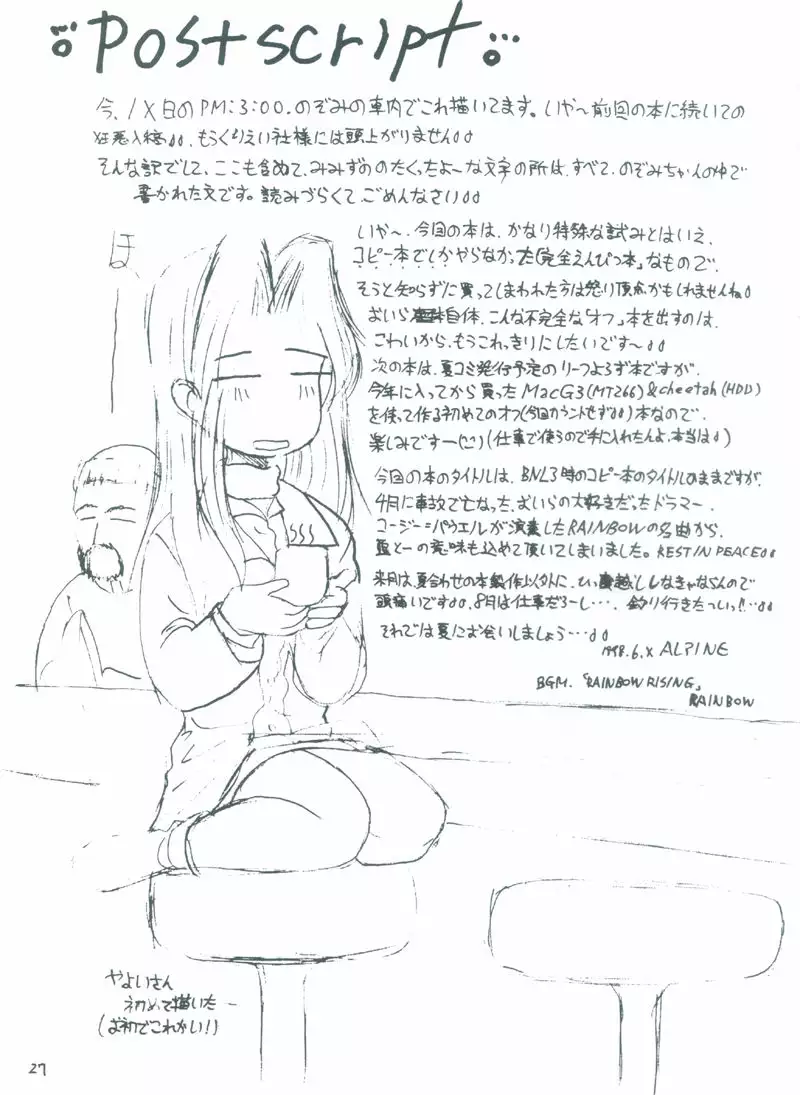 Postscript
今、1X日のPM:3:00.のぞみの車内でこれ描いてます。いや〜前回の本に続いての
狂悪入稿、もうくりえい社様には頭上がりません
そんな訳でして、ここも含めて、みみずののたくったよーな文字の所は、すべて、のぞみちゃんの中で
書かれた文です。読みづらくて、ごめんなさい
ほ、
いや〜、今回の本は、かなり特殊な試みとはいえ、
コピー本でしかやらなかった「完全えんぴつ本」なもので、
そうと知らずに買ってしまわれた方は怒り頂点かもしれませんね
おいら自体、こんな不完全な「オフ」本を出すのは、
こわいから、もうこれっきりにしたいです〜
次の本は、夏コミ発行予定のリーフよろず本ですが、
今年に入ってから買ったMacG3(MT266)&cheetah(HDD)
を使って作る初めてのオフ(今回カウントせず)本なので、
楽しみですー(仕事で使うので手に入れたんよ、本当は)
今回の本のタイトルは、BNL3時のコピー本のタイトルのままですが、
4月に事故で亡なった、おいらの大好きだったドラマー、
コージー=パウエルが演奏したRAINBOWの名曲から、
の意味も込めて頂いてしまいました。REST IN PEACE
来月は、夏合わせの本製作以外に、引越ししなきゃならんので
頭痛いです、8月は仕事だろーし…、釣り行きたっいっ!!…
それでは夏にお会いしましょう…
1998.6.X ALPINE
BGM.「RAINBOW RISING」
RAINBOW
やよいさん
初めて描いた…
(お初でこれかい!)
27